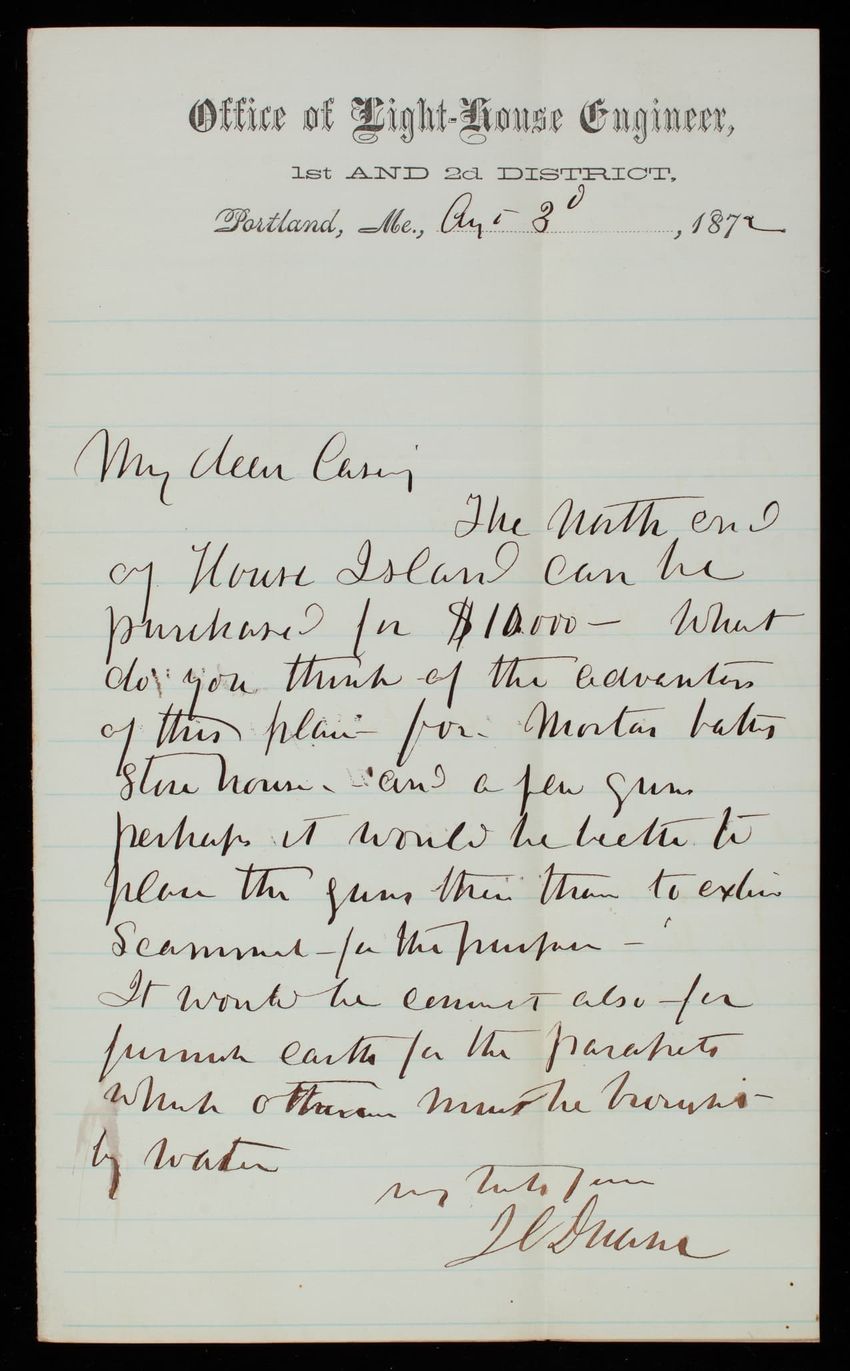 Office of Light-House Engineer,
1st AND 2d DISTRICT,
Portland, Me., Augt 3d, 1872
My dear Casey
The North end
of House Island can be
purchased for $10.000 – What
do you think of the
of this place for Mortar
Store house. and a few guns
perhaps it would be better to
place the guns there than to
Scammel for the purpose –
It would be also for
furnish earth for the parapets
which must be brought
by water
truly yours
J C Duane